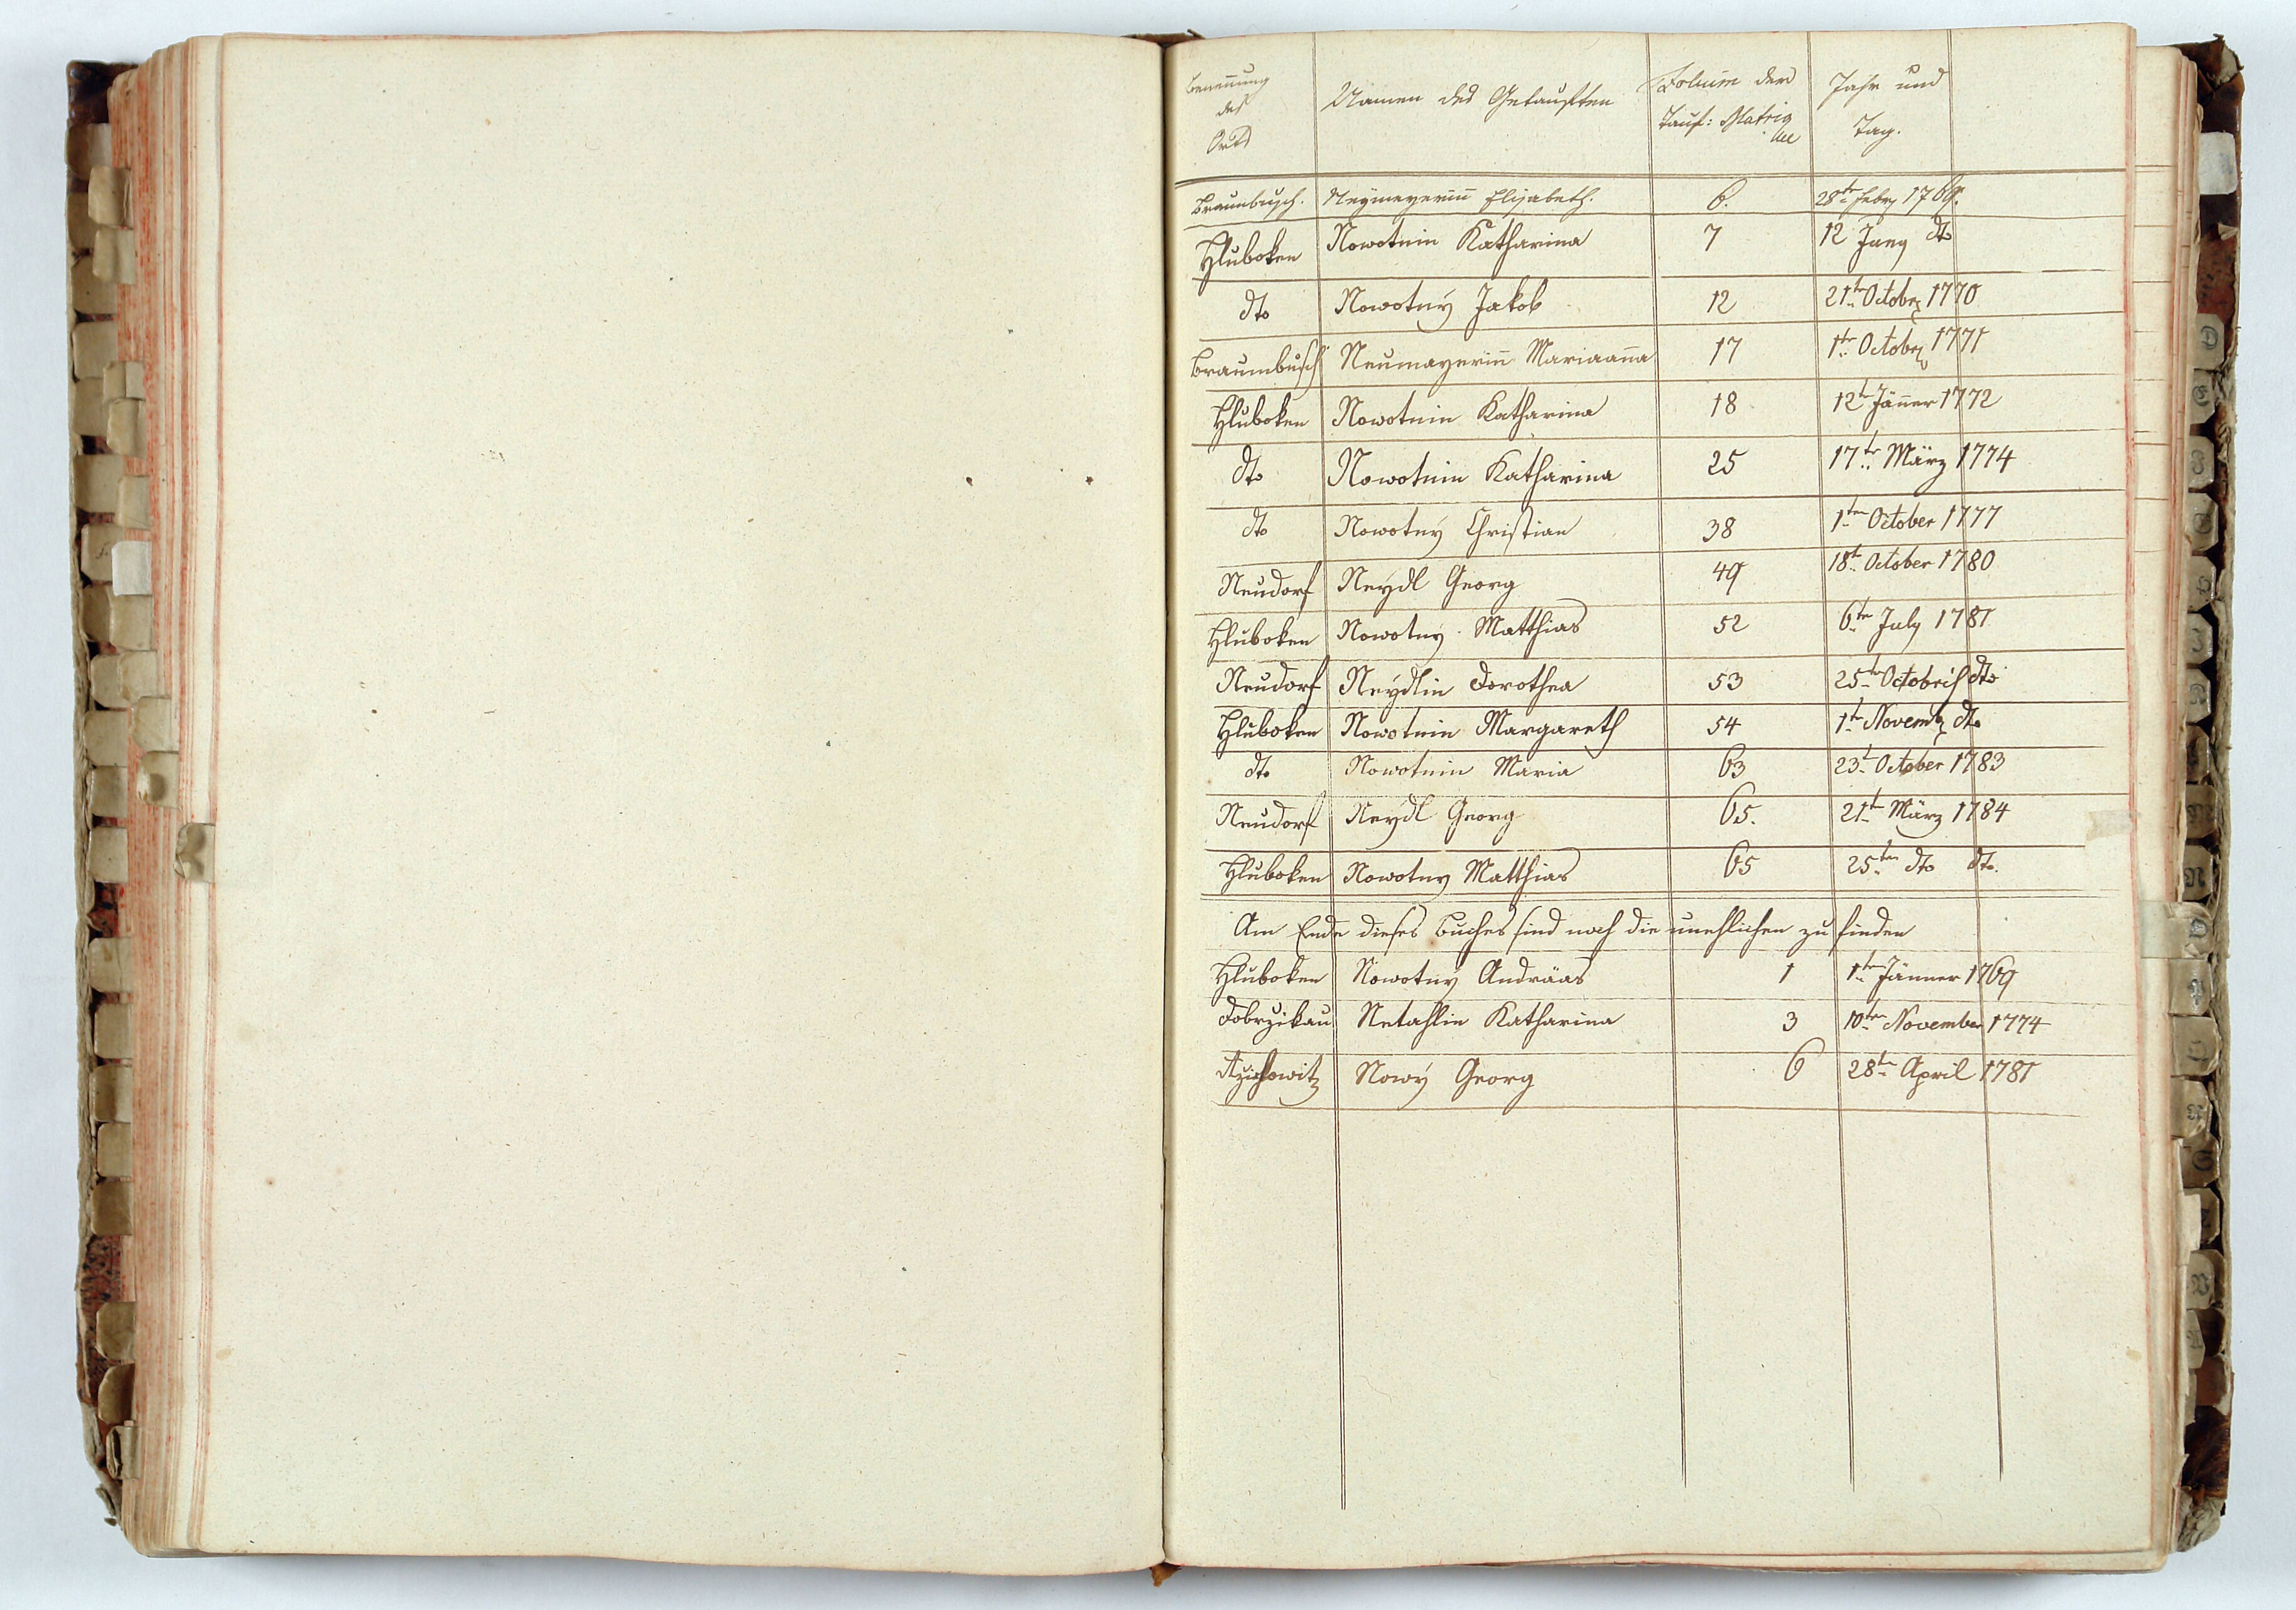 Benennung des Orts
Namen des Getauften
Folium der Tauf: Matrique
Jahr und Tag.
Braunbusch. Neymeyerin̄ Elisabeth. 6. 28ten Febry 1769.
Hluboken Nowotnin Katharina 7 12 Juny dto
dto Nowotnÿ Jakob 12 21ten Octobr 1770
Braumbusch Neumayerin̄ Mariaan̄a 17 1ten Octobr 1771
Hluboken Nowotnin Katharina 18 12t Jäner 1772
dto Nowotnin Katharina 25 17te März 1774
dto Nowotnÿ Christian 38 1ten October 1777
Neudorf Neÿdl Georg 49 18t October 1780
Hluboken Nowotny Matthias 52 6ten July 1781
Neudorf Neÿdlin Dorothea 53 25te Octobris dto
Hluboken Nowotnin Margareth 54 1te Novemb dto
dto Nowotnin Maria 63 23t October 1783
Neudorf Neÿdl Georg 65. 21t März 1784
Hluboken Nowotny Matthias 65 25ten dto dto.
Am Ende dieses Buches sind noch die unehlichen zu finden
Hluboken Nowotnÿ Andräas 1 1ten Jänner 1769
Dobrzikau Netahlin Katharina 3 10ten November 1774
Nowÿ Georg 6 28ten April 1781